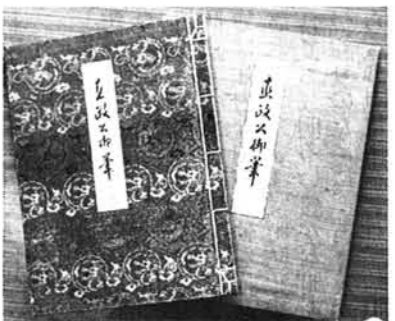 直政公御筆
直政公御筆